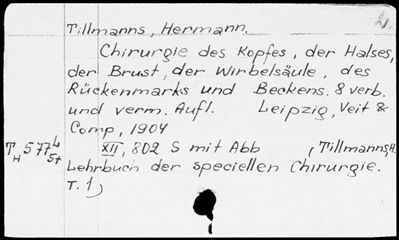 Tillmanns, Hermann.
Chirurgie des Kopfes, der Halses,
der Brust, der Wirbelsäule, des
Rückenmarks und Beckens. 8 verb.
und verm. Aufl. Leipzig, Veit &
Comp, 1904
XII, 802 S mit Abb (Tillmanns, H.
Lehrbuch der speciellen Chirurgie.
T. 1)